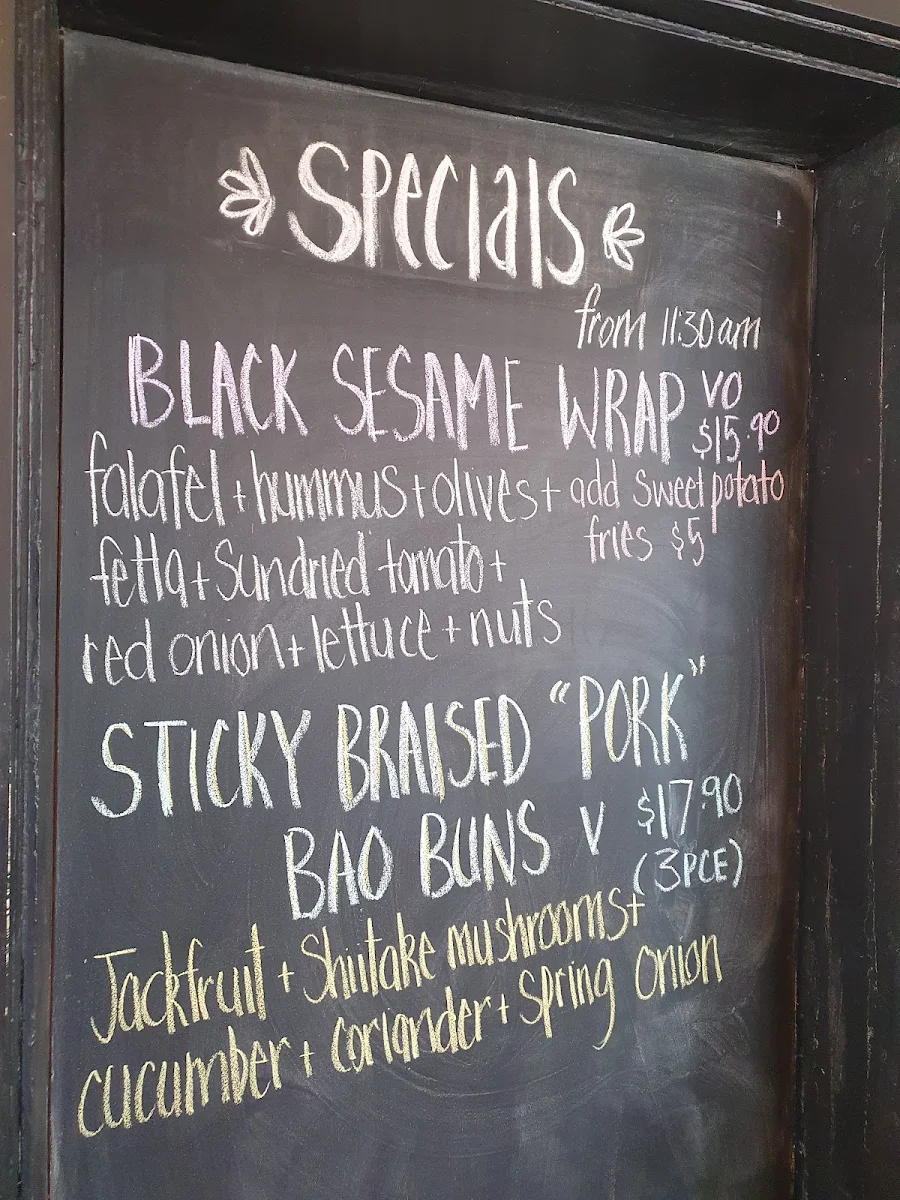 Specials
from 11:30am
BLACK SESAME WRAP VO
$15.90
falafel + hummus + olives +
add sweet potato
fries $5
fetta + Sundried tomato +
red onion + lettuce + nuts
STICKY BRAISED "PORK"
BAO BUNS V $17.90
(3PCE)
Jackfruit + Shiitake mushrooms +
cucumber + coriander + spring onion